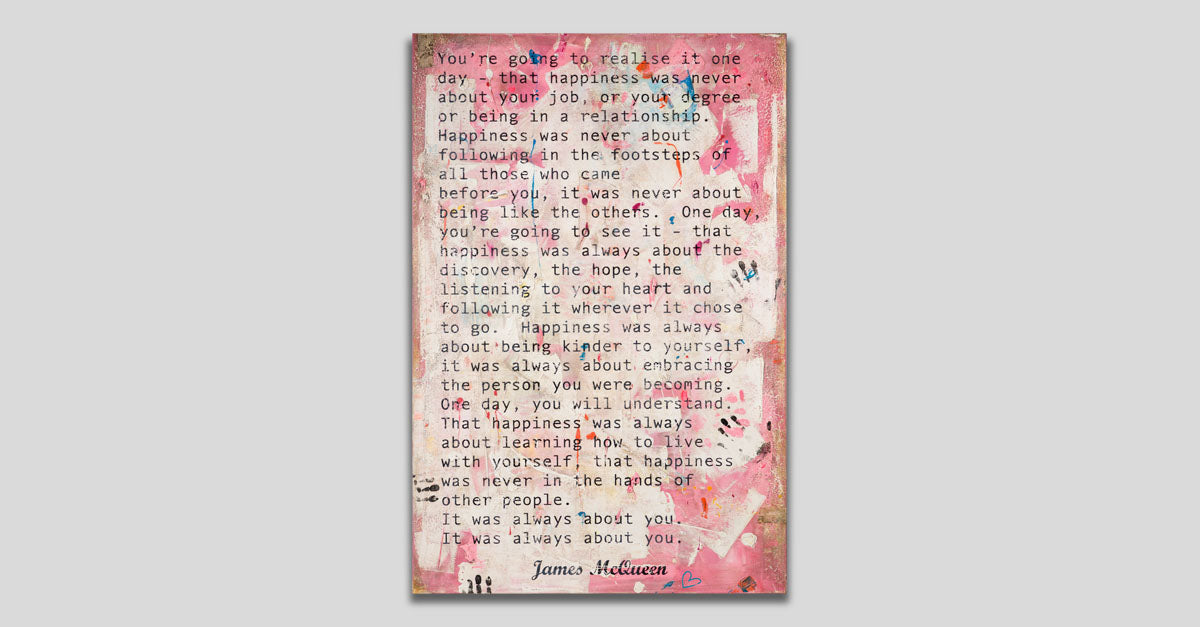 You're going to realise it one
day - that happiness was never
about your job, or your degree
or being in a relationship.
Happiness was never about
following in the footsteps of
all those who came
before you, it was never about
being like the others.  One day,
you're going to see it - that
happiness was always about the
discovery, the hope, the
listening to your heart and
following it wherever it chose
to go.  Happiness was always
about being kinder to yourself,
it was always about embracing
the person you were becoming.
One day, you will understand.
That happiness was always
about learning how to live
with yourself, that happiness
was never in the hands of
other people.
It was always about you.
It was always about you.
James McQueen